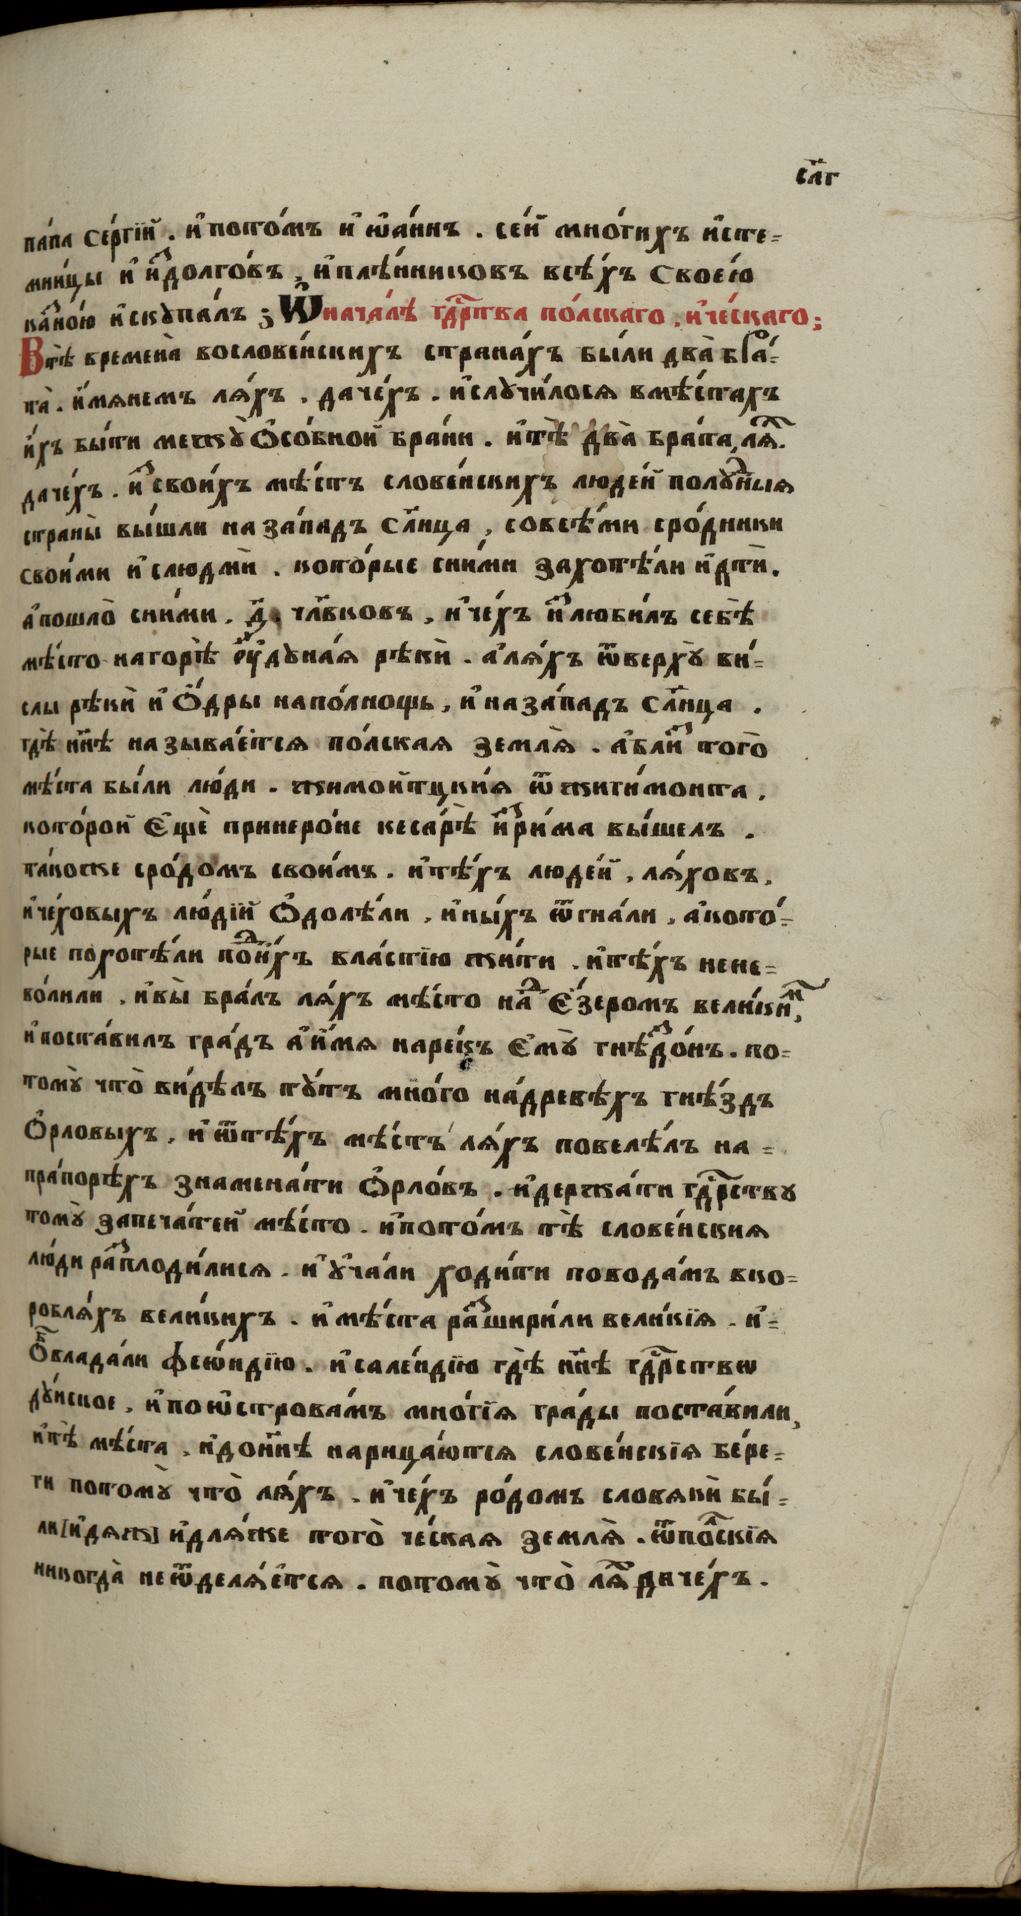 сл҃г
па́па Се́ргїй . и҆ пото́мъ и҆ ѡ҆а́ннъ . се́й мно́гихъ и҆сте=
мни́цы и҆ и҆здолго́въ , и҆плѣ́нниковъ всѣ́хъ Свое́ю
казно́ю и҆скупа́лъ ; Ѡ҆нача́лѣ гдⷭ҇рства по́лскаго , и҆че́скаго ;
Втѣ̀ времена̀ вослове́нскихъ страна́хъ бы́ли два̀ бра́=
та̀ . и҆́мянемъ ля́хъ , да че́хъ . и҆случи́лося вмѣ́стахъ
и҆́хъ бы́ти межꙋ̀ Ѻ҆со́бной бра́ни . и҆тѣ̀ два̀ бра́та , ля́х .
да че́хъ . и҆зсвои́хъ мѣ́стъ слове́нскихъ люде́й полу́дныя
страны̀ вы́шли на за́падъ Сл҃нца , совсѣ́ми сро́дники
свои́ми и҆слюдмѝ . кото́рые сни́ми захотѣ́ли и҆дтѝ .
а҆пошло̀ сни́ми , д҃ . чл҃вковъ , и҆че́хъ и҆злюби́лъ себѣ̀
мѣ́сто нагорѣ̀ ѹ҆ду́ная рѣкѝ . а҆ля́хъ ѿверхꙋ̀ ви́=
слы рѣкѝ и҆ Ѻ҆́дры напо́лнощь , и҆ на за́падъ Сл҃нца .
гдѣ̀ нн҃ѣ называ́ется по́лская земля̀ . а҆бли́з того̀
мѣ́ста бы́ли лю́ди . жимойтцки́я ѿ жигимонта ,
кото́рой Е҆щѐ принеро́не кесарѣ̀ и҆зри́ма вы́шелъ .
та́коже сро́домъ свои́мъ . и҆тѣ́хъ люде́й , ля́ховъ ,
и҆че́ховыхъ лю́дїй Ѻ҆долѣ́ли , и҆ны́хъ ѿгна́ли , а҆кото́=
рые похотѣ́ли поди́хъ вла́стїю жи́ти , и҆тѣ́хъ нене=
во́лили , и҆вы̀ бра́лъ ля́хъ мѣ́сто над Е҆́зеромъ вели́ким ,
и҆поста́вилъ гра́дъ а҆ и҆́мя наре́къ Е҆мꙋ̀ гнѣздо́нъ . по=
томꙋ̀ что̀ ви́дѣлъ тꙋ́тъ мно́го на́древѣхъ гнѣ́здъ
Ѻ҆рловыхъ , и҆ ѿтѣ́хъ мѣ́стъ ля́хъ повелѣ́лъ на =
пра́порѣхъ знамена́ти Ѻ҆рло́въ . и҆держа́ти гдⷭ҇рствꙋ
томꙋ̀ запеча́тей мѣ́сто . и҆пото́мъ тѣ̀ слове́нския
лю́ди расплоди́лися . и҆ ꙋ҆ча́ли ходи́ти поводамъ вко=
робля́хъ вели́кихъ . и҆ мѣ́ста разшири́ли вели́кїя . и҆=
Ѻ҆бладали фио́ндїю . и҆ сале́ндїю гдѣ̀ нн҃ѣ гдⷭ҇рство
ду́нское , и҆поѡ҆строва́мъ мно́гїя гра́ды поста́вили ,
и҆тѣ̀ мѣ́ста , и҆донн҃ѣ нарица́ются слове́нскїя бе́ре=
ги потомꙋ̀ что̀ ля́хъ , и҆че́хъ ро́домъ словякѝ бы́=
ли [и҆ дяж] и҆для́же того̀ че́ская земля̀ . ѿпо́лскїя
никогда̀ неѿделя́ется . потомꙋ̀ что̀ ля́х да че́хъ .